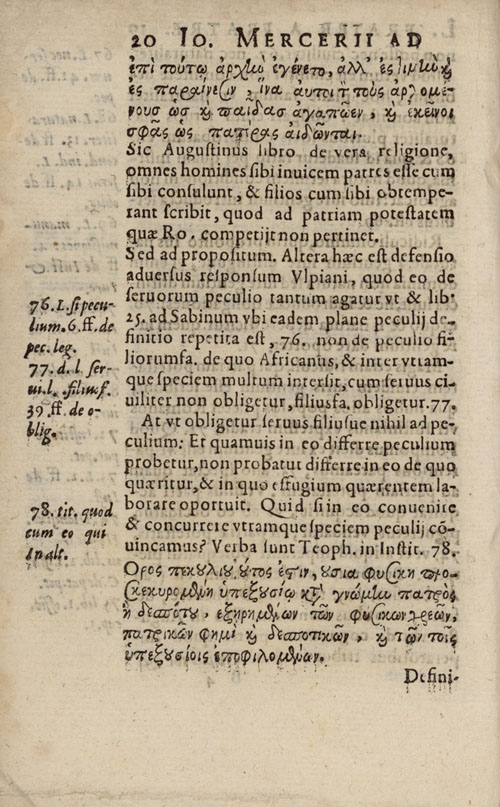 20 IO. MERCERII AD
ἐπὶ τούτῳ ἀρχὴν ἐγένετο, ἀλλ' ἐς τιμὴν καὶ
ἐς παραίνεσιν, ἵνα αὐτοί τε τοὺς ἀρχομέ-
νους ὡς καὶ παῖδας ἀγαπῷεν, καὶ ἐκεῖνοι
σφᾶς ὡς πατέρας αἰδῶνται.
Sic Augustinus libro de vera religione,
omnes homines sibi inuicem patres esse cum
sibi consulunt, & filios cum sibi obtempe-
rant scribit, quod ad patriam potestatem
quæ Ro. competijt non pertinet.
Sed ad propositum. Altera hæc est defensio
aduersus responsum Vlpiani, quod eo de
seruorum peculio tantum agatur vt & lib.
25. ad Sabinum vbi eadem plane peculij de-
finitio repetita est, 76. non de peculio fi-
liorumfa. de quo Africanus, & inter vtram-
que speciem multum intersit, cum seruus ci-
uiliter non obligetur, filiusfa. obligetur. 77.
At vt obligetur seruus filiusue nihil ad pe-
culium: Et quamuis in eo differre peculium
probetur, non probatut differre in eo de quo
quæritur, & in quo effugium quærentem la-
borare oportuit. Quid si in eo conuenire
& concurrere vtramque speciem peculij cō-
uincamus? Verba sunt Teoph. in Instit. 78.
Ορος πεκουλίου οὗτος ἐστιν, οὐσία φυσικὴ προσ-
κεκυρομένη ὑπεξουσίῳ κατὰ γνώμην πατρὸς
ἢ δεσπότου, ἐξῃρημένων τῶν φυσικῶν χρεῶν,
πατρικῶν φημὶ καὶ δεσποτικῶν, καὶ τῶν τοῖς
ὑπεξουσίοις ἐποφιλομένων.
Defini-
76. l. si pecu-
lium. 6. ff. de
pec. leg.
77. d. l. ser-
ui. l. filiusf.
39. ff. de o-
blig.
78. tit. quod
cum eo qui
in alt.